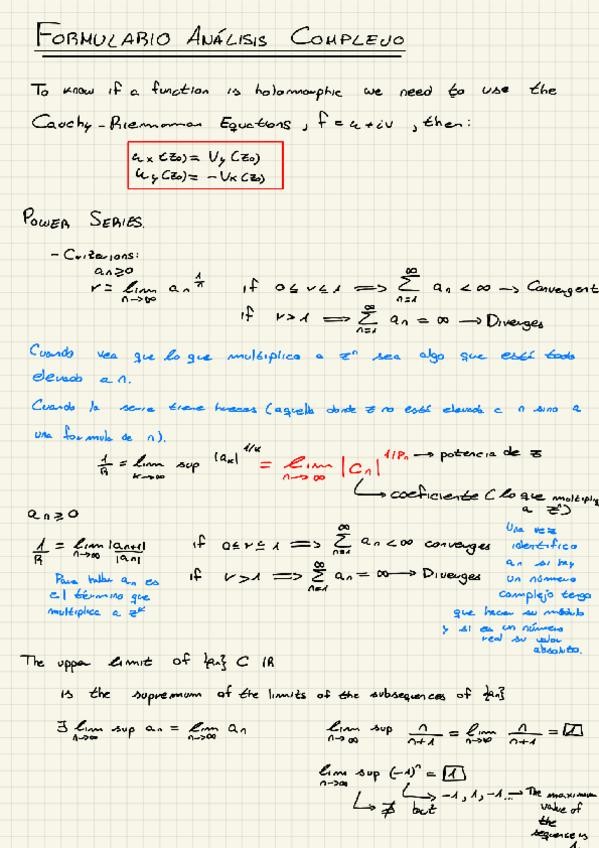 FORMULARIO ANÁLISIS COMPLEJO
To know if a function is holommorphic we need to use the
Cauchy-Riemman Equations, f = u + iv, then:
ux(z0) = Vy(z0)
uy(z0) = -Vx(z0)
POWER SERIES.
- Criterions:
an ≥ 0
r = lim n→∞ an^(1/n)   if 0 ≤ r ≤ 1 ⟹ ∑ n=1 ∞ an < ∞ → Convergent
if r > 1 ⟹ ∑ n=1 ∞ an = ∞ → Diverges
Cuando vea que lo que multiplica a z^n sea algo que está todo
elevado a n.
Cuando la serie tiene huecos (aquella donde z no está elevada a n sino a
una formula de n).
1/R = lim k→∞ sup |ak|^(1/k) = lim n→∞ |Cn|^(1/Pn) → potencia de z
↳ coeficiente (lo que multiplica
a z^n)
an ≥ 0
1/R = lim n→∞ |an+1|/|an|   if 0 ≤ r ≤ 1 ⟹ ∑ n=1 ∞ an < ∞ converges
if r > 1 ⟹ ∑ n=1 ∞ an = ∞ → Diverges
Para hallar an es
el término que
multiplica a z^k
Una vez
identifico
an si hay
un número
complejo tengo
que hacer su módulo
y si es un número
real su valor
absoluto.
The upper limit of {an} C IR
is the supremum of the limits of the subsequences of {an}
∃ lim n→∞ sup an = lim n→∞ an   lim n→∞ sup n/(n+1) = lim n→∞ n/(n+1) = 1
lim n→∞ sup (-1)^n = 1
↳ ∄ but ↳ -1, 1, -1... → The maximum
value of
the
sequence is
1